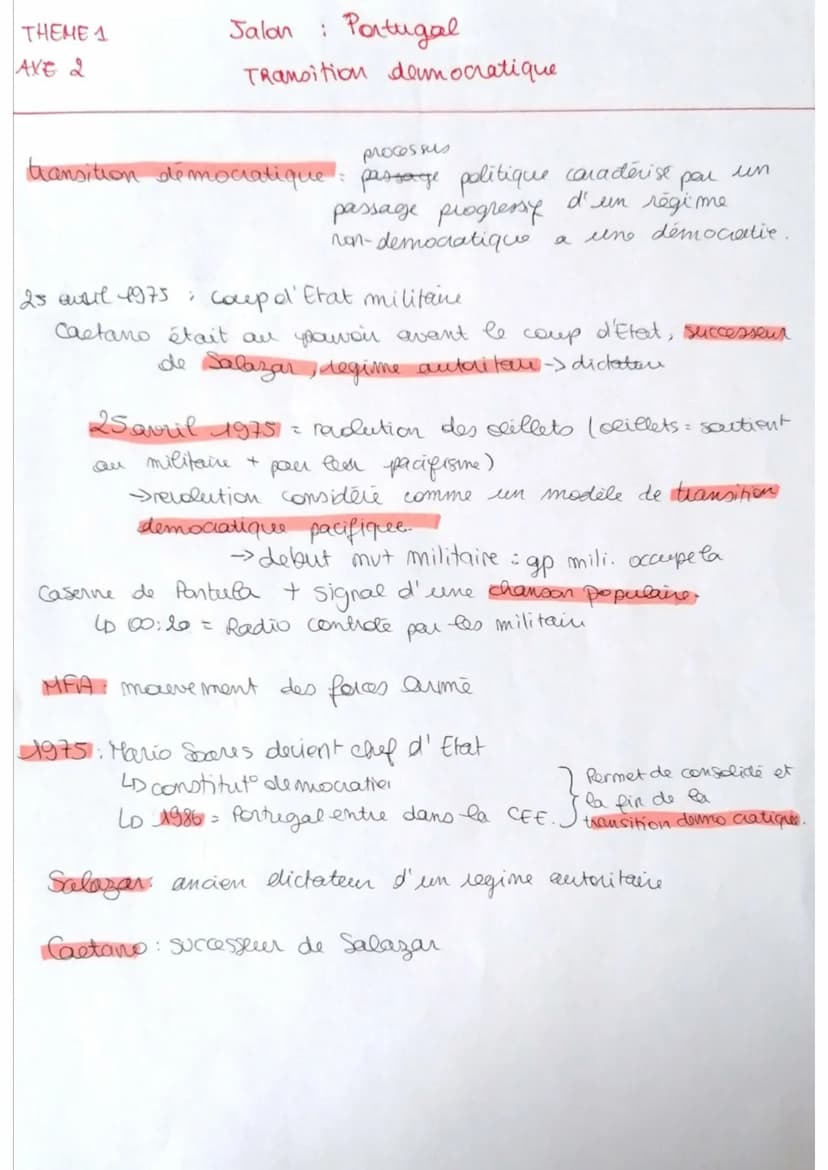 THEME 1
Jalon : Portugal
AXE 2
TRansition démocratique
processus
transition démocratique : passage politique caractérisé par un
passage progressif d'un régime
non-democratique a une démocratie.
25 avril 1975 : coup d'Etat militaire
Caetano était au pouvoir avant le coup d'Etat, successeur
de Salazar, regime autoritaire -> dictateur
25 avril 1975 = revolution des oeillets (oeillets = soutient
au militaire + pour leur pacifisme)
-> revolution considéré comme un modèle de transition
democratique pacifique.
-> debut mvt militaire : gp mili. occupe la
Caserne de Pontuha + signal d'une chanson populaire.
↳ 00:20 = Radio controlé par les militaire
MFA : mouvement des forces armé
1975 : Mario Soares devient chef d'Etat
↳ constitut° democratie
↳ 1986 = Portugal entre dans la CEE.
} Permet de consolidé et
la fin de la
transition democratique.
Salazar : ancien dictateur d'un regime autoritaire
Caetano : successeur de Salazar